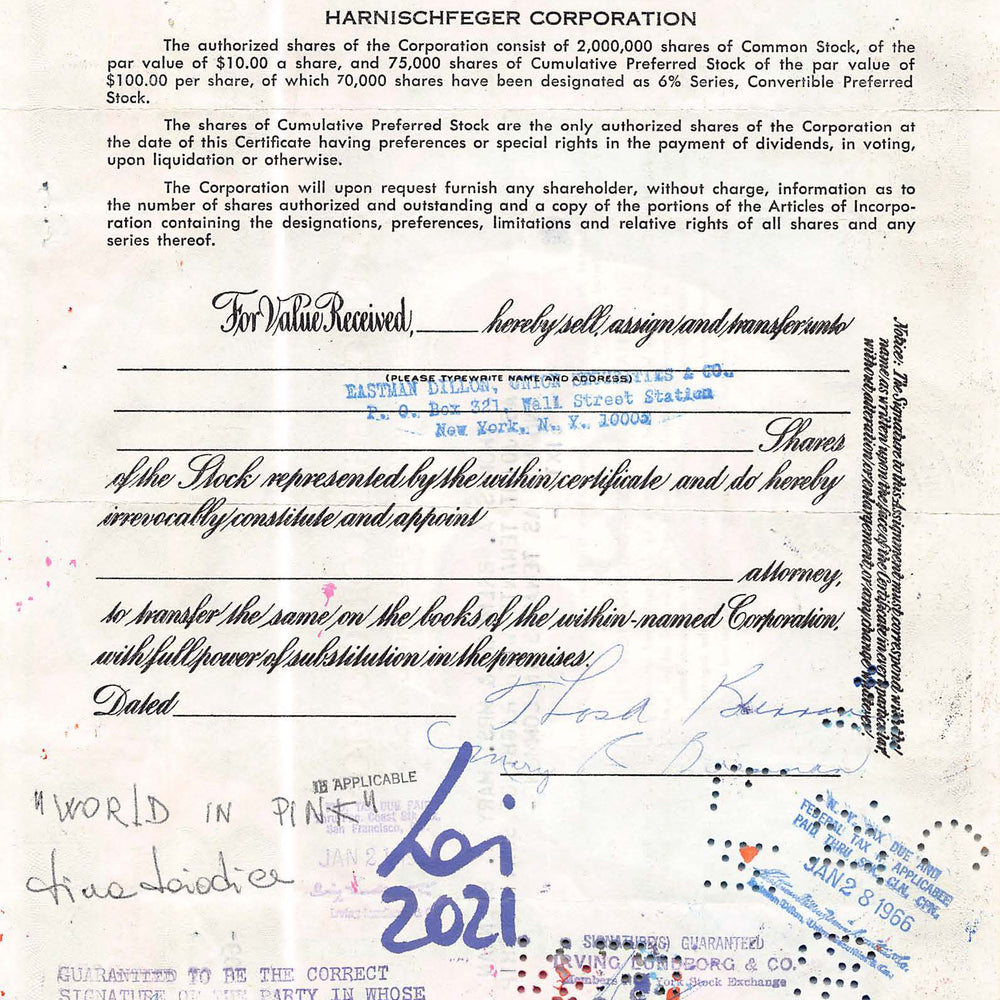 HARNISCHFEGER CORPORATION
The authorized shares of the Corporation consist of 2,000,000 shares of Common Stock, of the
par value of $10.00 a share, and 75,000 shares of Cumulative Preferred Stock of the par value of
$100.00 per share, of which 70,000 shares have been designated as 6% Series, Convertible Preferred
Stock.
The shares of Cumulative Preferred Stock are the only authorized shares of the Corporation at
the date of this Certificate having preferences or special rights in the payment of dividends, in voting,
upon liquidation or otherwise.
The Corporation will upon request furnish any shareholder, without charge, information as to
the number of shares authorized and outstanding and a copy of the portions of the Articles of Incorpo-
ration containing the designations, preferences, limitations and relative rights of all shares and any
series thereof.
For Value Received, hereby sell, assign and transfer unto
(PLEASE TYPEWRITE NAME AND ADDRESS)
EASTMAN DILLON, UNION SECURITIES & CO.
P. O. Box 321, Wall Street Station
New York, N. Y. 10005
Shares
of the Stock represented by the within certificate and do hereby
irrevocably constitute and appoint
attorney,
to transfer the same on the books of the within-named Corporation,
with full power of substitution in the premises.
Dated
Mary R
Notice: The Signature to this Assignment must correspond with the
name as written upon the face of the Certificate in every particular,
without alteration or enlargement or any change whatever.
IF APPLICABLE
"WORLD IN PINK"
San Francisco,
JAN 2
2021
N. Y. TAX DUE AND
FEDERAL TAX IF APPLICABLE
PAID THRU STK. CLR. CPN.
JAN 28 1966
SIGNATURE(S) GUARANTEED
IRVING LUNDBORG & CO.
Members York Stock Exchange
GUARANTEED TO BE THE CORRECT
SIGNATURE OF THE PARTY IN WHOSE